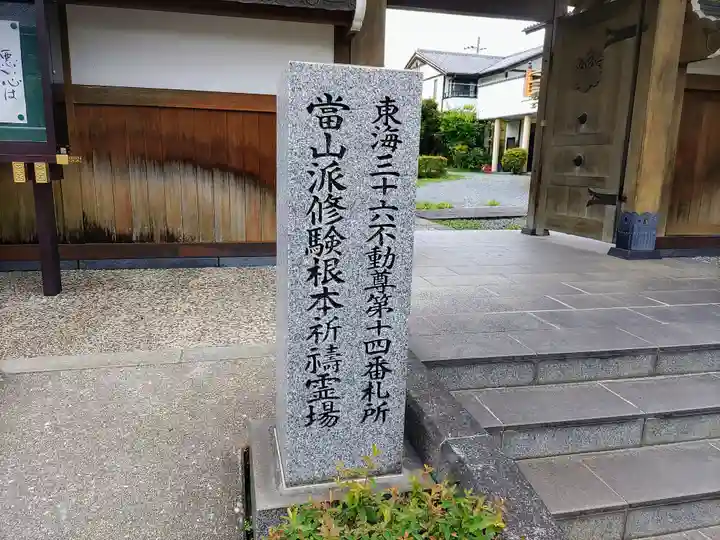 東海三十六不動尊第十四番札所
當山派修験根本祈禱霊場
悪心は